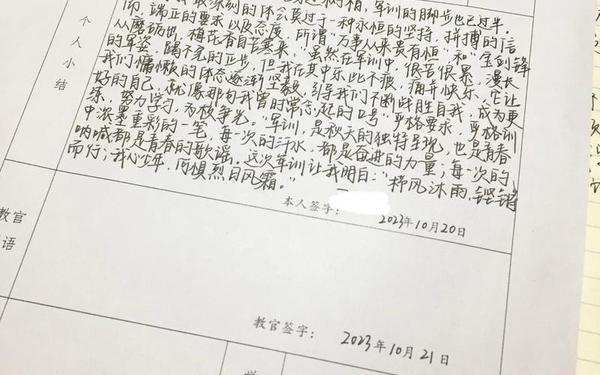 军训的脚步也已过半。
最深刻的体会莫过于一种永恒的坚持,拼搏的信
而,端正的要求以及态度。所谓"万事从来最有恒"和"宝剑锋
从磨砺出,梅花香自苦寒来。"虽然在军训中,很苦很累,漫长
的军姿,踢不完的正步,但我在其中乐此不疲,痛并快乐。它让
我们慵懒的体态逐渐坚毅,引导我们不断战胜自我,成为更
好的自己。就像那句我曾时常念起的口号"严格要求,严格训
练,努力学习,为校争光。"军训,是秋天的独特呈现,也是青春
中浓墨重彩的一笔,每一次的汗水,都是奋进的力量;每一次的
呐喊都是青春的歌谣。这次军训让我明白:"栉风沐雨,铿锵
而行;我心少年,何惧烈日风霜。"
个人小结
本人签字:
2023年10月20日
教官
语
教官签字: 2023年10月21日